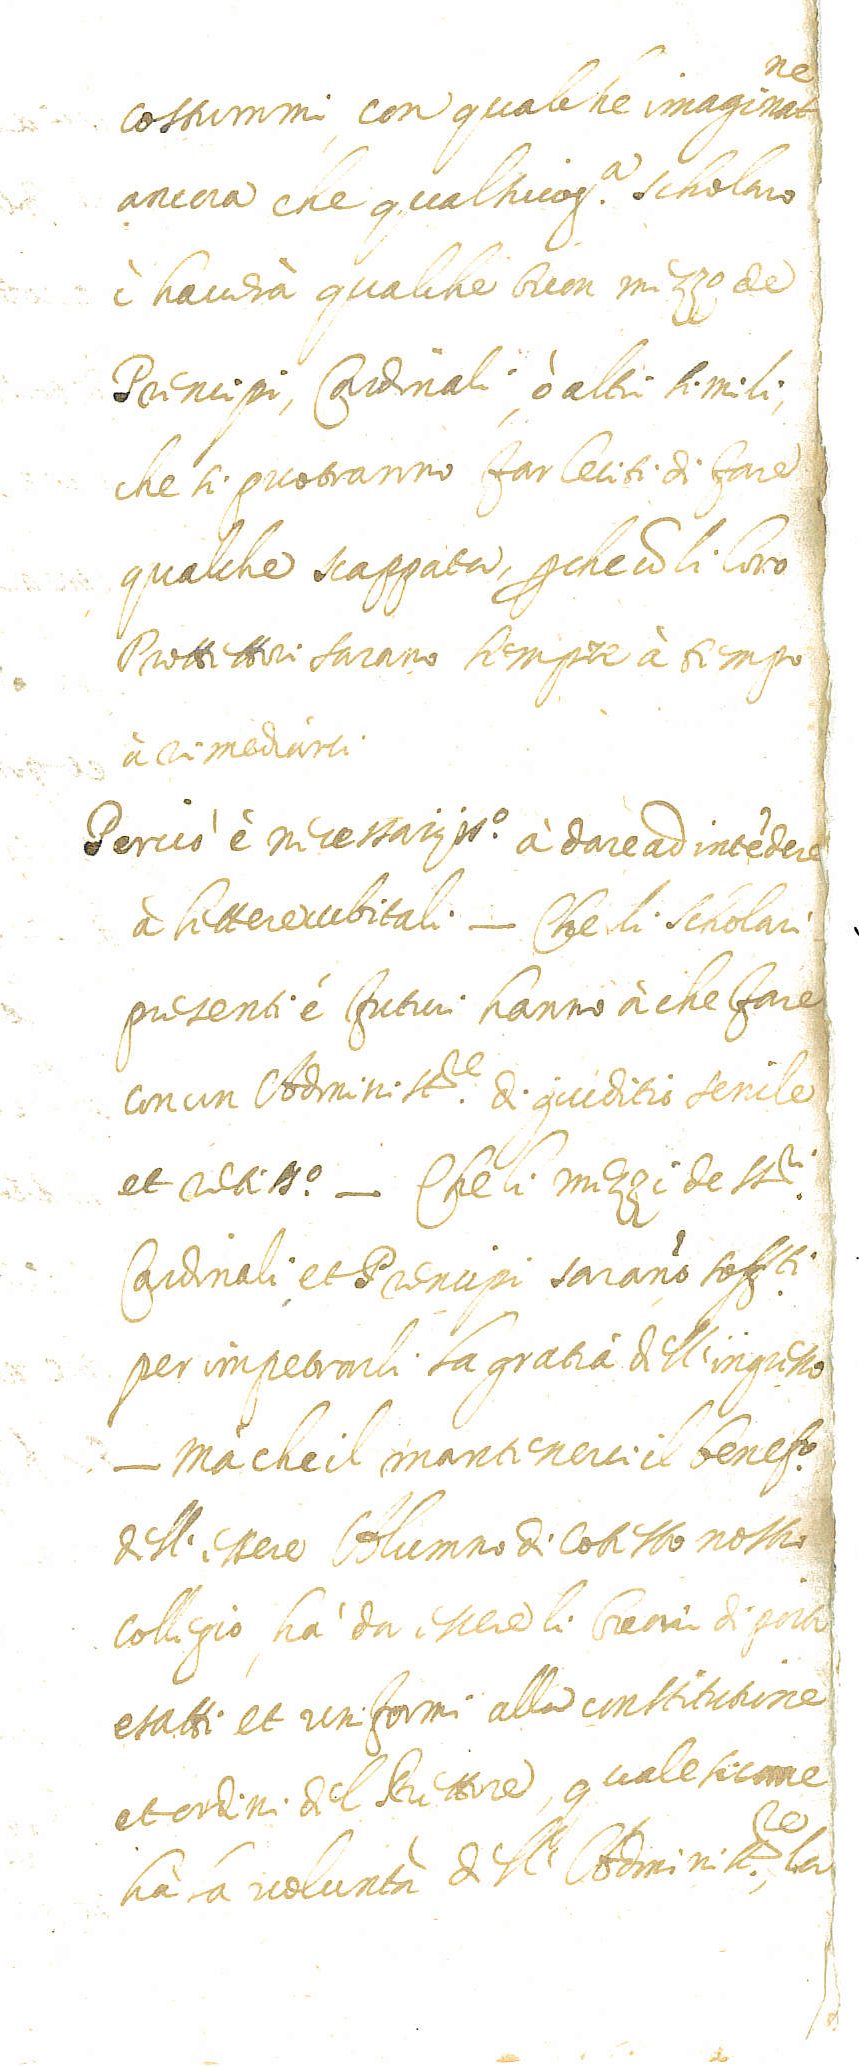 costummi, con qualche imaginat.ne
ancora che qualsivog.a scholaro
è haverà qualche buon mezzo de
Prencipi, Cardinali, ò altri simili,
che si puotranno far leciti di fare
qualche scappata, perche li loro
Prottettori sarano sempre à tempo
à rimediarci
Perciò è necessarijss.o à dare ad intẽdere
à lettere cubitali — Che li scholari
presenti é futuri hanno à che fare
con un Administ.re di giuditio senile
et rettiss.o — Che li mezzi de ss.ri
Cardinali et Prencipi sarano
per impetrarli la gratia dell'ingresso
— mà che il mantenerci il benef.o
dell'essere Alumno di cotesto nostro
collegio, ha' da essere li
esatti et uniformi alla constitutione
et ordini del Rettore, quale sicome
hà la voluntà dell'Administ.re, la